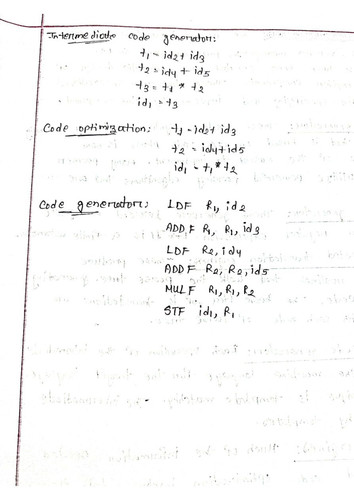 Intermediate code generator:
t1 = id2 + id3
t2 = id4 + id5
t3 = t1 * t2
id1 = t3
Code optimization: t1 = id2 + id3
t2 = id4 + id5
id1 = t1 * t2
Code generator: LDF R1, id2
ADDF R1, R1, id3
LDF R2, id4
ADDF R2, R2, id5
MULF R1, R1, R2
STF id1, R1